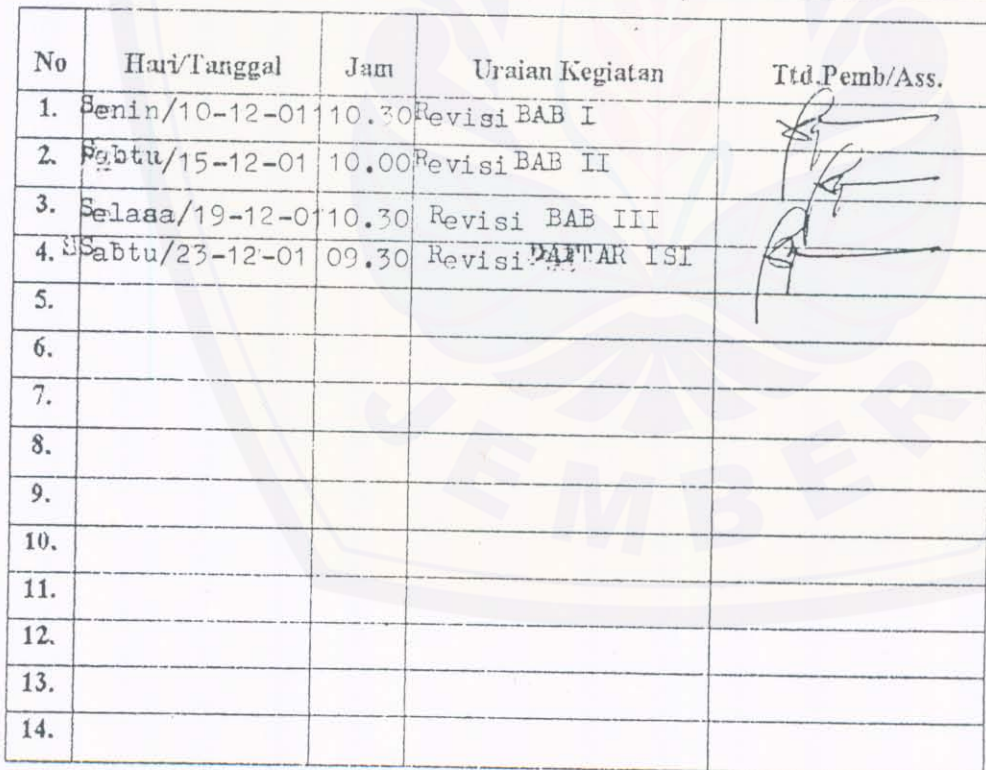 No Hari/Tanggal Jam Uraian Kegiatan Ttd.Pemb/Ass.
1. Senin/10-12-01 10.30 Revisi BAB I
2. Sabtu/15-12-01 10.00 Revisi BAB II
3. Selasa/19-12-01 10.30 Revisi BAB III
4. Sabtu/23-12-01 09.30 Revisi DAFTAR ISI
5.
6.
7.
8.
9.
10.
11.
12.
13.
14.
JEMBER